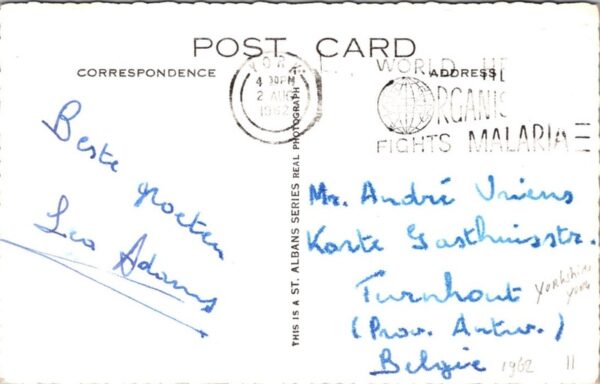 POST CARD
CORRESPONDENCE
ADDRESS
YORK
4 30PM
2 AUG
1962
WORLD HE
ORGANIS
FIGHTS MALARIA
Beste groeten
Leo Adams
THIS IS A ST. ALBANS SERIES REAL PHOTOGRAPH
Mr. André Vriens
Korte Gasthuisstr.
Turnhout
(Prov. Antw.)
Belgie
Yorkshire
York
1962
11